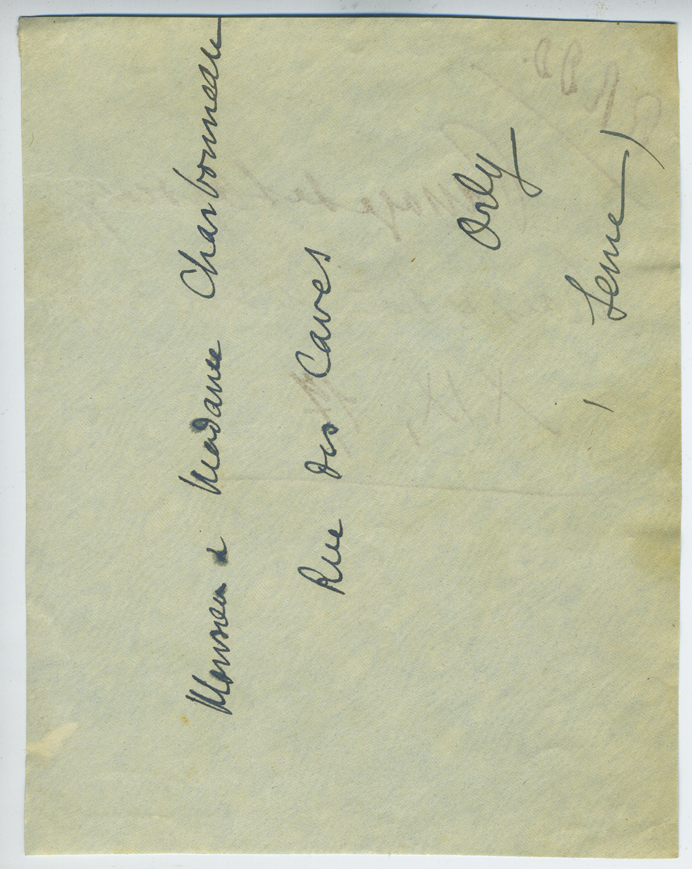 Monsieur & Madame Charbonneau
Rue des Caves
Orly
(Seine)